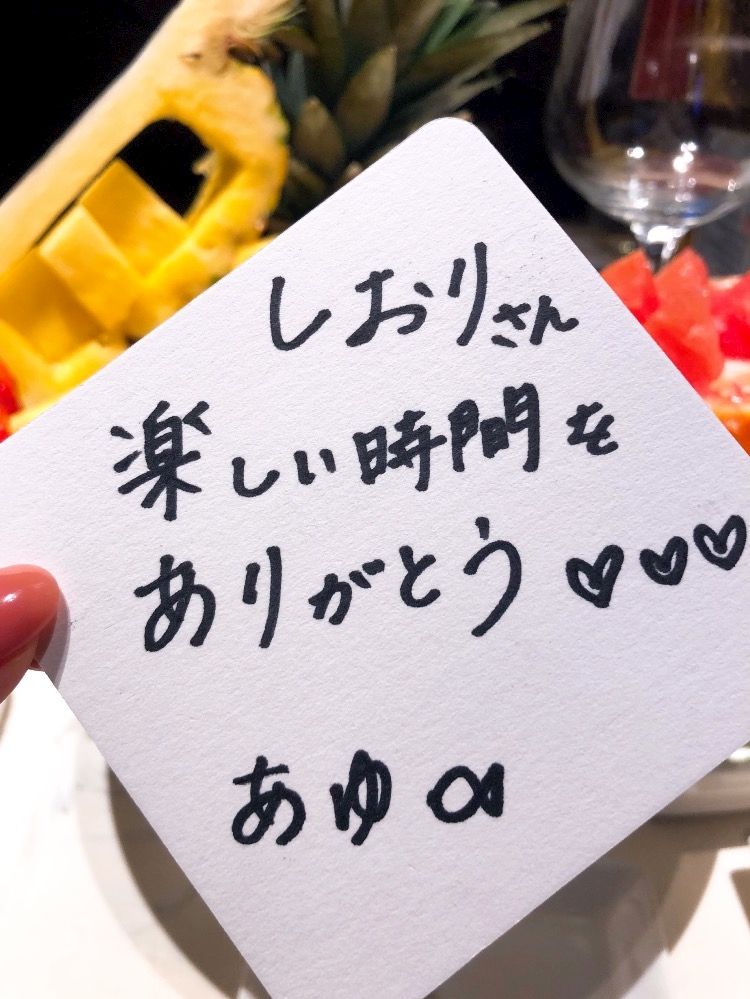 しおりさん
楽しい時間を
ありがとう♡♡♡
あゆ